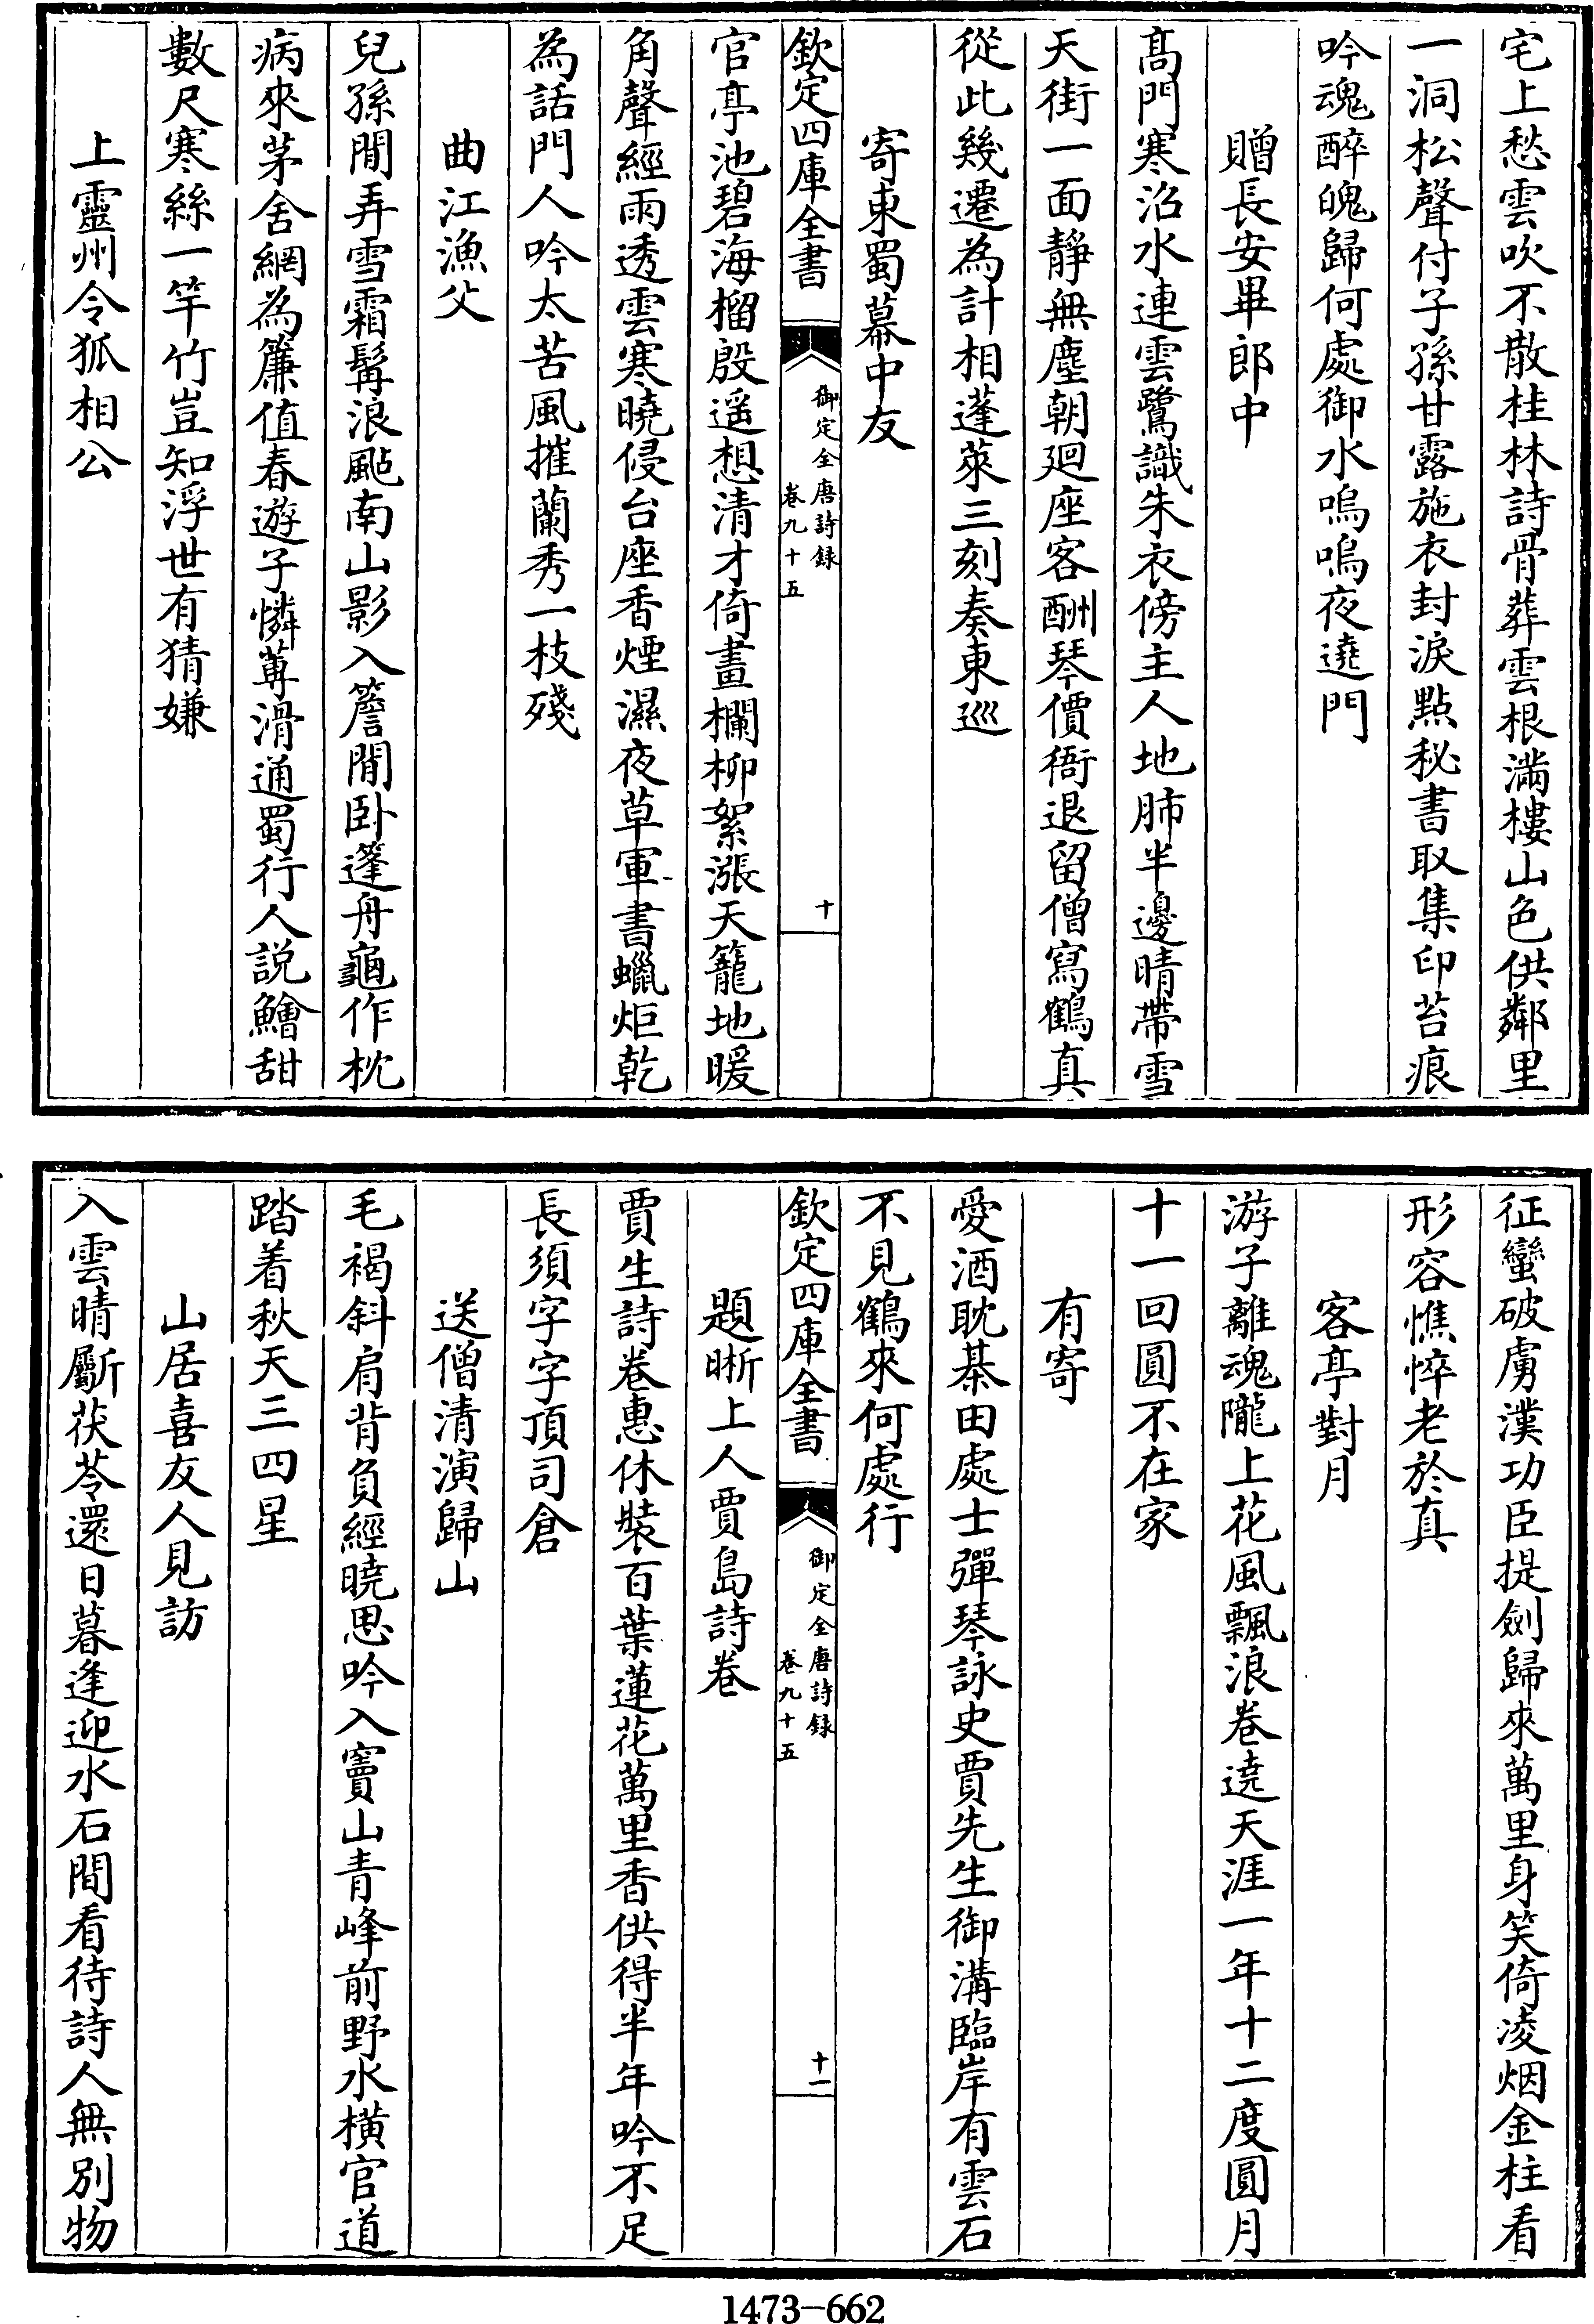 宅上愁雲吹不散桂林詩骨葬雲根滿樓山色供鄰里
一洞松聲付子孫甘露施衣封淚點秘書取集印苔痕
吟魂醉魄歸何處御水嗚嗚夜遶門
贈長安畢郎中
髙門寒沼水連雲鷺識朱衣傍主人地肺半邊晴帶雪
天街一面靜無塵朝廻座客酬琴價衙退留僧寫鶴真
從此幾遷為計相蓬萊三刻奏東巡
寄東蜀幕中友
欽定四庫全書
御定全唐詩録
卷九十五
十
官亭池碧海榴殷遥想清才倚畫欄柳絮漲天籠地暖
角聲經雨透雲寒曉侵台座香煙濕夜草軍書蠟炬乾
為話門人吟太苦風摧蘭秀一枝殘
曲江漁父
兒孫閒弄雪霜髯浪颭南山影入簷閒卧篷舟龜作枕
病來茅舍網為簾值春遊子憐蓴滑通蜀行人說鱠甜
數尺寒絲一竿竹豈知浮世有猜嫌
上靈州令狐相公
征蠻破虜漢功臣提劍歸來萬里身笑倚凌烟金柱看
形容憔悴老於真
客亭對月
游子離魂隴上花風飄浪卷遶天涯一年十二度圓月
十一回圓不在家
有寄
愛酒耽棊田處士彈琴詠史賈先生御溝臨岸有雲石
不見鶴來何處行
欽定四庫全書
御定全唐詩録
卷九十五
十一
題晰上人賈島詩卷
賈生詩卷惠休裝百葉蓮花萬里香供得半年吟不足
長須字字頂司倉
送僧清演歸山
毛褐斜肩背負經曉思吟入竇山青峰前野水横官道
踏着秋天三四星
山居喜友人見訪
入雲晴斸茯苓還日暮逢迎水石間看待詩人無別物
1473-662